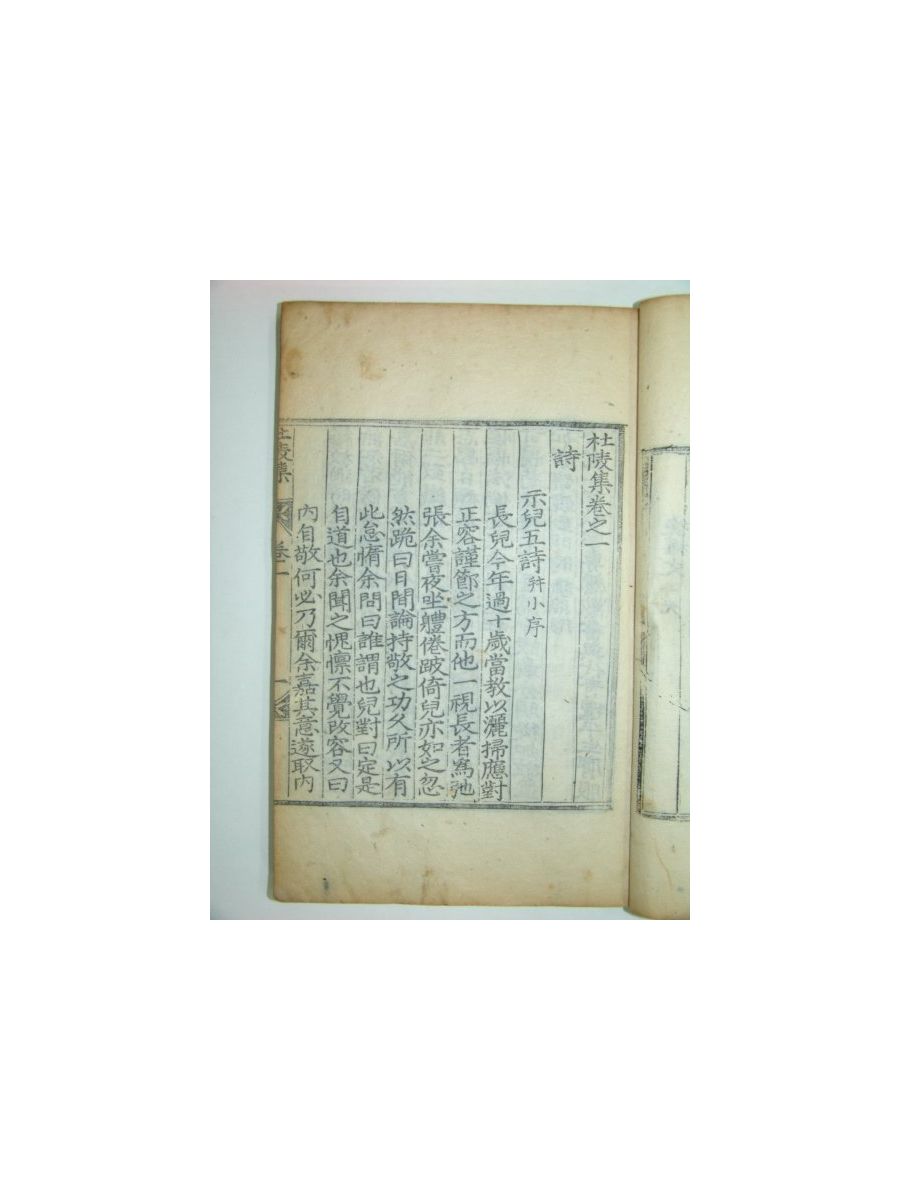 杜陵集卷之一
詩
示兒五詩 幷小序
長兒今年過十歲當教以灑掃應對
正容謹節之方而他一視長者爲弛
張余嘗夜坐軆倦跛倚兒亦如之忽
然跪曰日間論持敬之功父所以有
此怠惰余問曰誰謂也兒對曰定是
自道也余聞之愧懍不覺改容又曰
內自敬何必乃爾余嘉其意遂取內
杜陵集 卷一 一